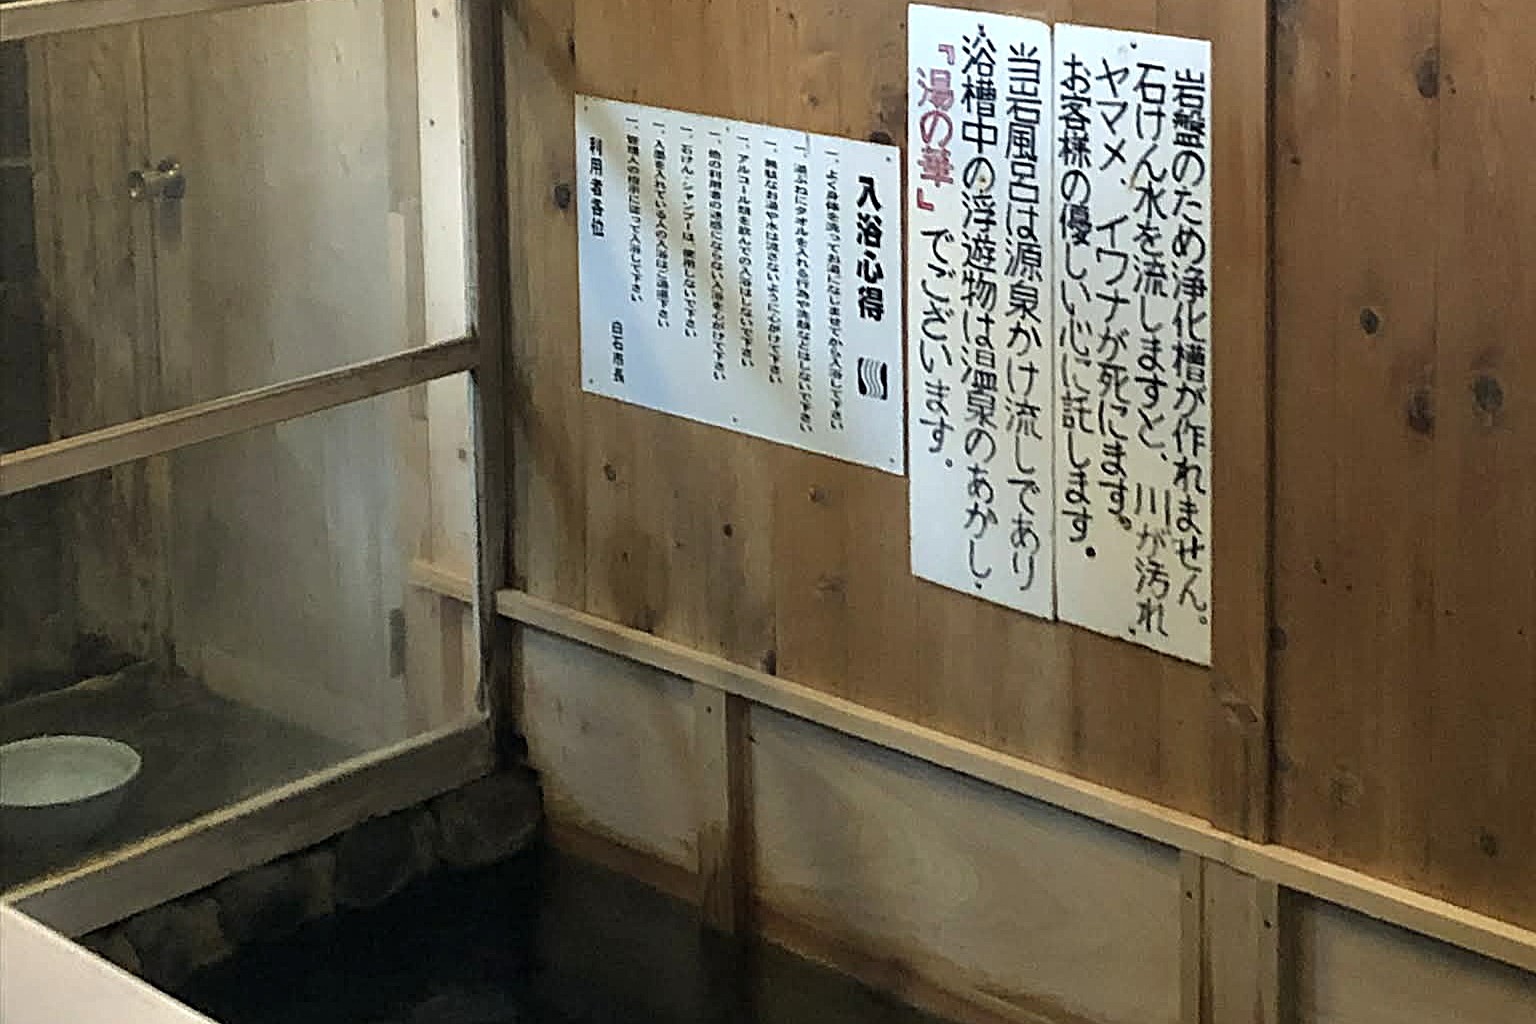 岩盤のため浄化槽が作れません。
石けん水を流しますと、川が汚れ
ヤマメ、イワナが死にます。
お客様の優しい心に託します。
当岩風呂は源泉かけ流しであり
浴槽中の浮遊物は温泉のあかし、
『湯の華』でございます。
入浴心得
一、よく身体を洗ってお湯になじませてから入浴して下さい
一、湯ぶねにタオルを入れる行為や洗髪などはしないで下さい
一、無駄なお湯や水は流さないように心がけて下さい
一、アルコール類を飲んでの入浴はしないで下さい
一、他の利用者の迷惑にならない入浴を心がけて下さい
一、石けん・シャンプーは、使用しないで下さい
一、入墨を入れている人の入浴はご遠慮下さい
一、管理人の指示に従って入浴して下さい
利用者各位
白石市長